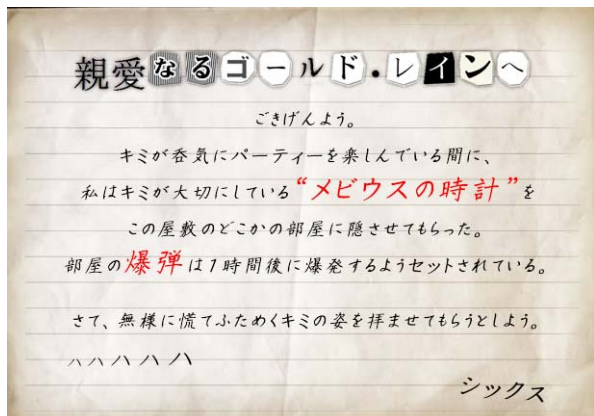 親愛なるゴールド・レインへ
ごきげんよう。
キミが呑気にパーティーを楽しんでいる間に、
私はキミが大切にしている“メビウスの時計”を
この屋敷のどこかの部屋に隠させてもらった。
部屋の爆弾は1時間後に爆発するようセットされている。
さて、無様に慌てふためくキミの姿を拝ませてもらうとしよう。
ハハハハハ
シックス